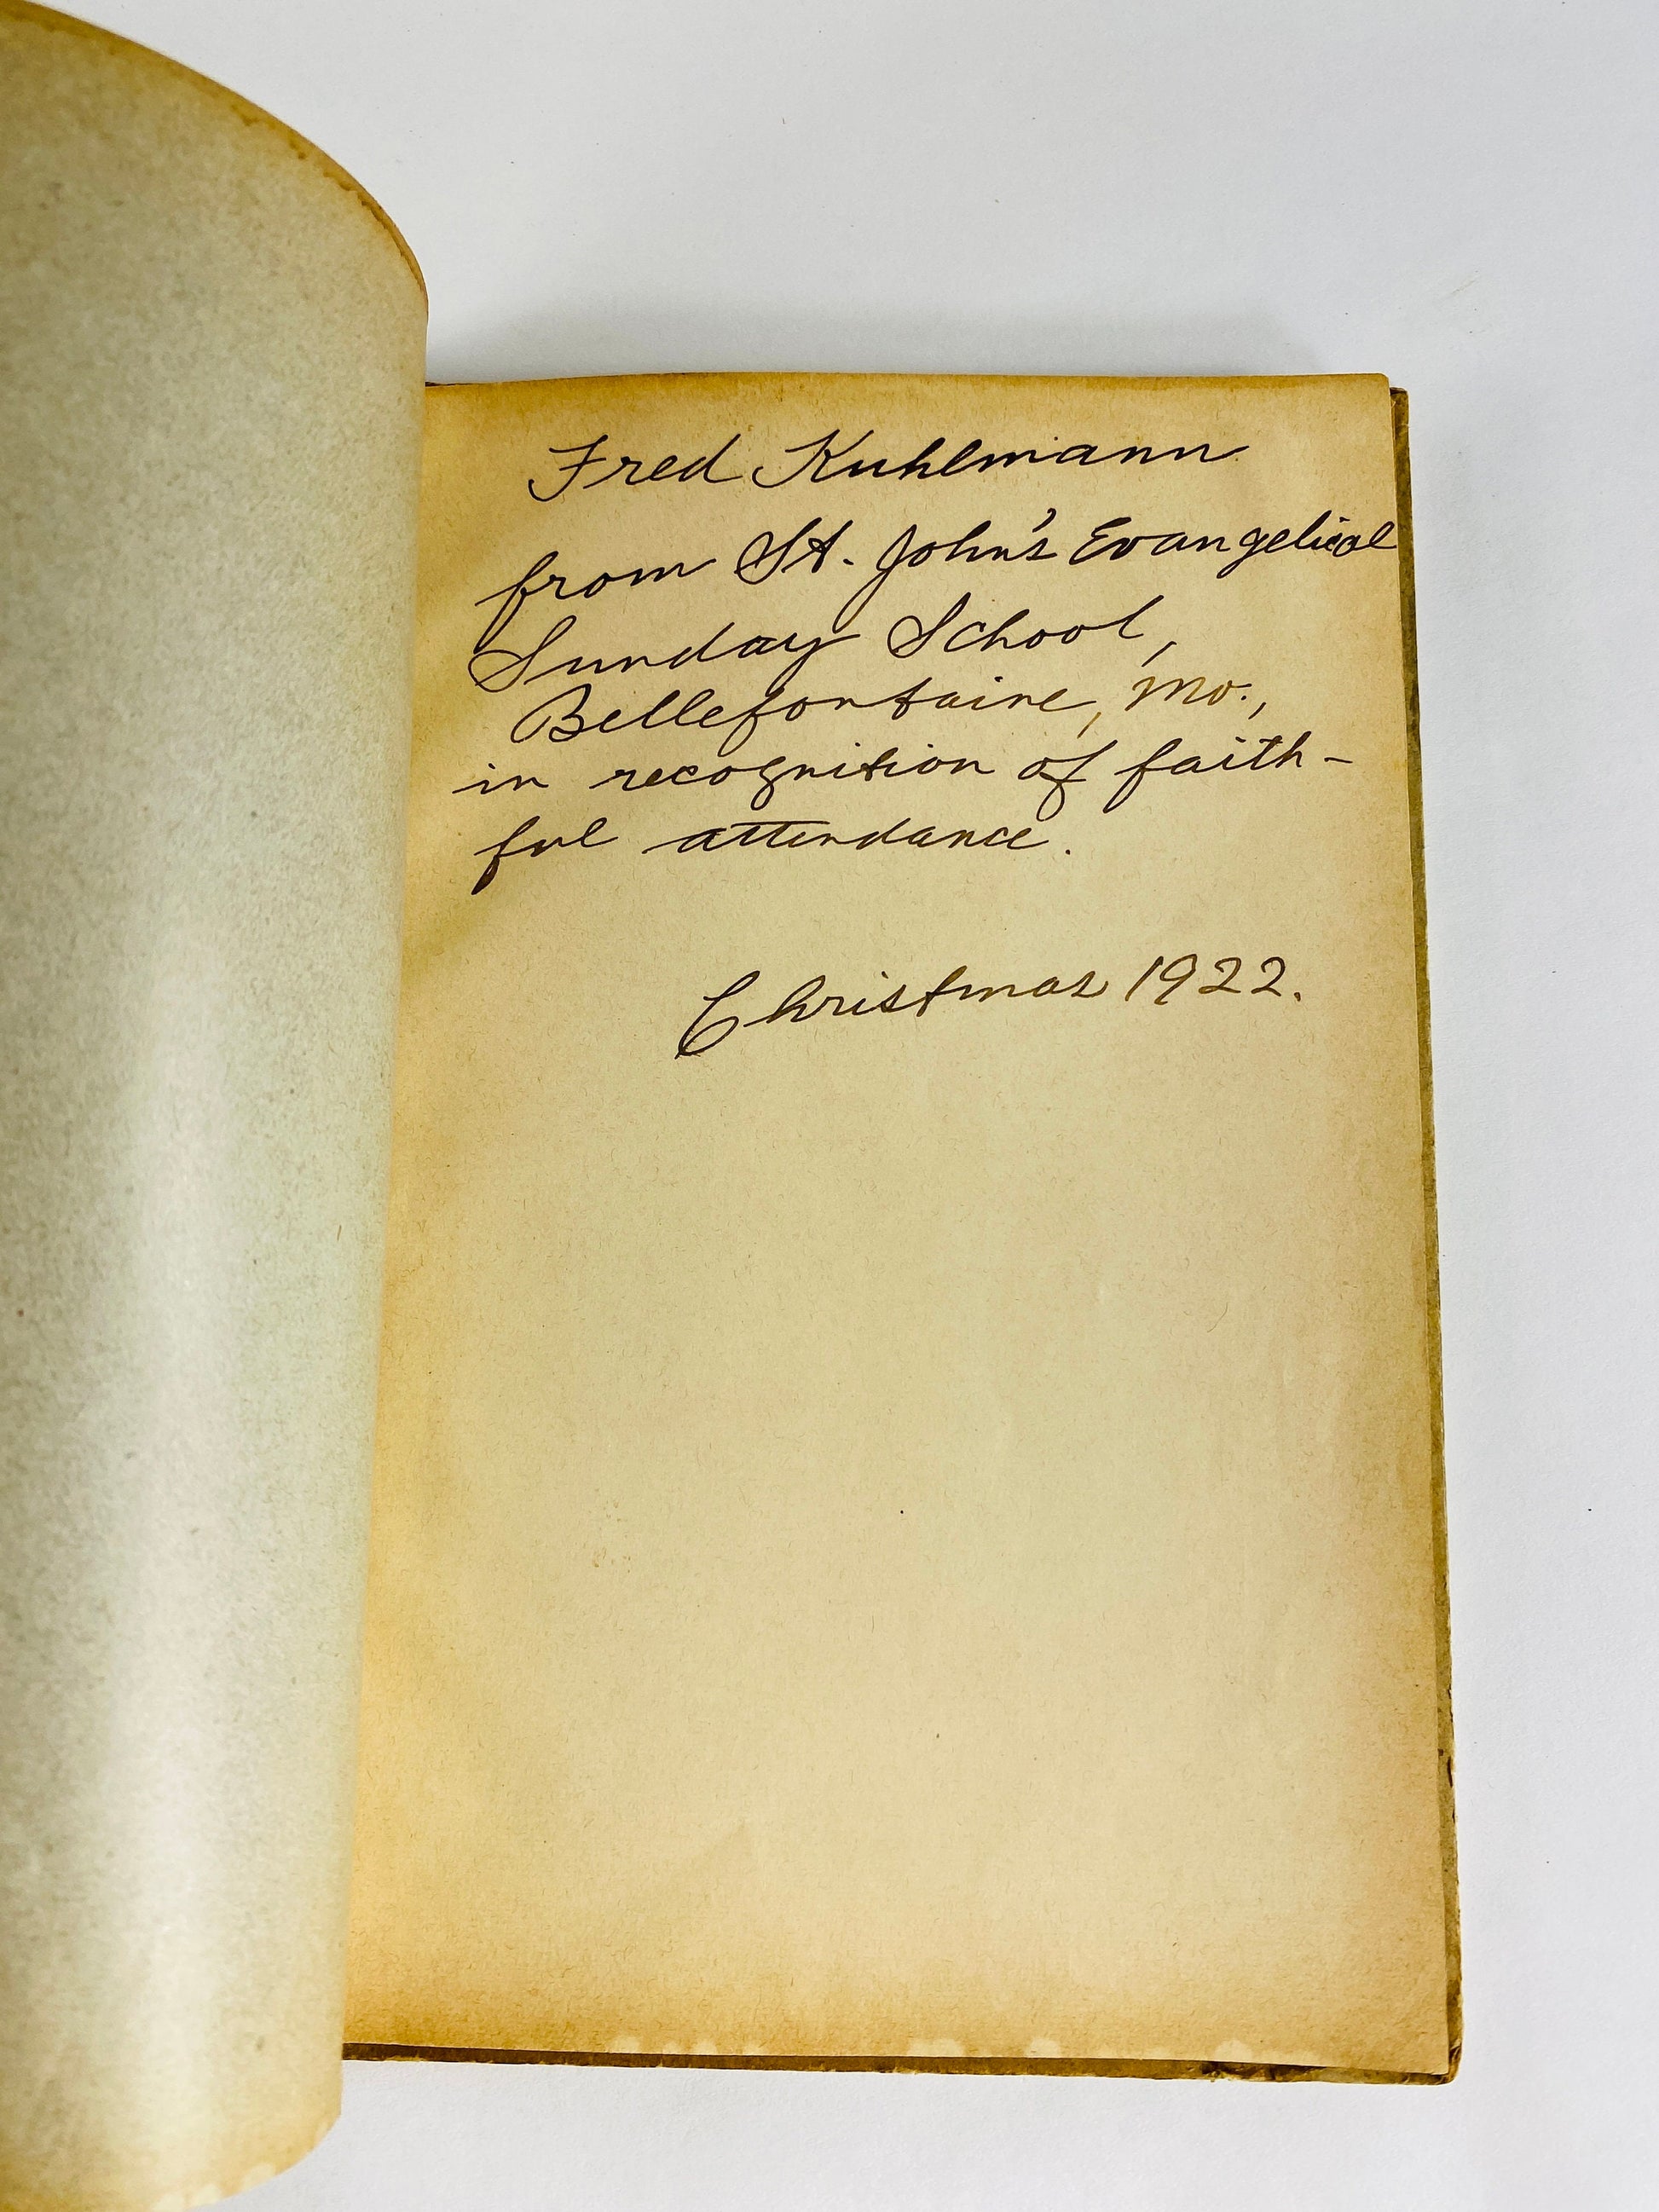 Fred Kuhlmann
from St. John's Evangelical
Sunday School,
Bellefontaine, Mo.,
in recognition of faith-
ful attendance.
Christmas 1922.